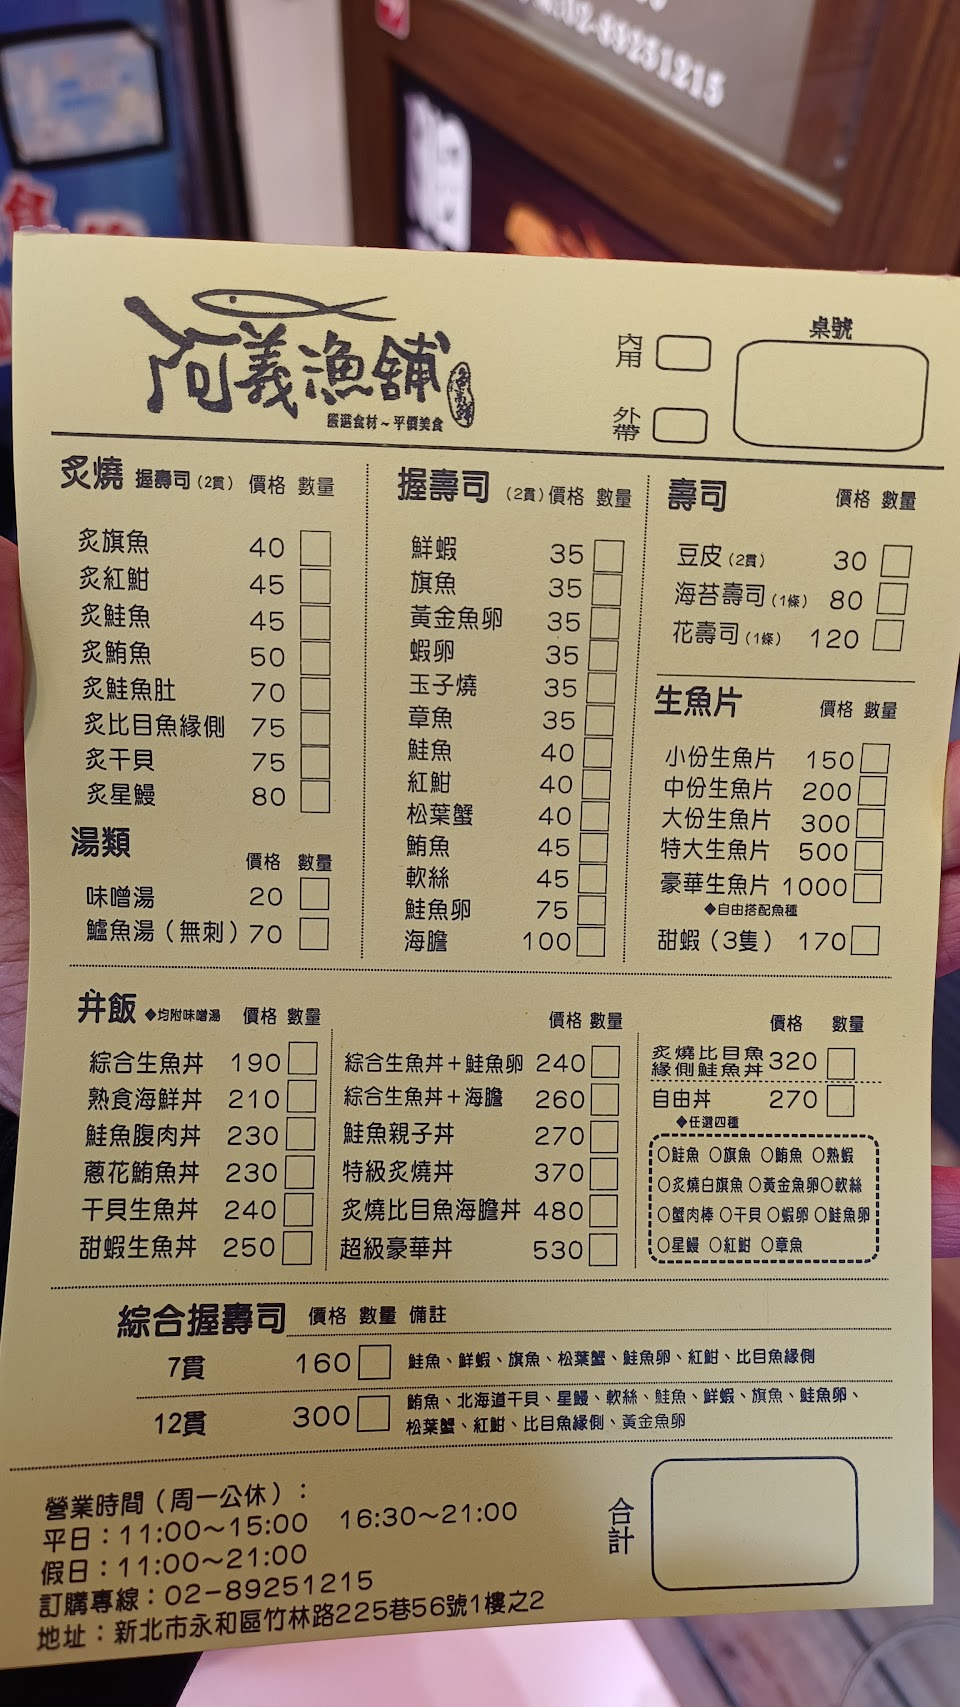 :02-89251215
阿義漁舖
嚴選食材~平價美食
內用
外帶
桌號
炙燒 握壽司(2貫) 價格 數量
炙旗魚 40
炙紅魽 45
炙鮭魚 45
炙鮪魚 50
炙鮭魚肚 70
炙比目魚緣側 75
炙干貝 75
炙星鰻 80
湯類 價格 數量
味噌湯 20
鱸魚湯(無刺) 70
握壽司 (2貫) 價格 數量
鮮蝦 35
旗魚 35
黃金魚卵 35
蝦卵 35
玉子燒 35
章魚 35
鮭魚 40
紅魽 40
松葉蟹 40
鮪魚 45
軟絲 45
鮭魚卵 75
海膽 100
壽司 價格 數量
豆皮(2貫) 30
海苔壽司(1條) 80
花壽司(1條) 120
生魚片 價格 數量
小份生魚片 150
中份生魚片 200
大份生魚片 300
特大生魚片 500
豪華生魚片 1000
◆自由搭配魚種
甜蝦(3隻) 170
丼飯 ◆均附味噌湯 價格 數量
綜合生魚丼 190
熟食海鮮丼 210
鮭魚腹肉丼 230
蔥花鮪魚丼 230
干貝生魚丼 240
甜蝦生魚丼 250
價格 數量
綜合生魚丼+鮭魚卵 240
綜合生魚丼+海膽 260
鮭魚親子丼 270
特級炙燒丼 370
炙燒比目魚海膽丼 480
超級豪華丼 530
價格 數量
炙燒比目魚
緣側鮭魚丼 320
自由丼 270
◆任選四種
○鮭魚 ○旗魚 ○鮪魚 ○熟蝦
○炙燒白旗魚 ○黃金魚卵 ○軟絲
○蟹肉棒 ○干貝 ○蝦卵 ○鮭魚卵
○星鰻 ○紅魽 ○章魚
綜合握壽司 價格 數量 備註
7貫 160 鮭魚、鮮蝦、旗魚、松葉蟹、鮭魚卵、紅魽、比目魚緣側
12貫 300 鮪魚、北海道干貝、星鰻、軟絲、鮭魚、鮮蝦、旗魚、鮭魚卵、
松葉蟹、紅魽、比目魚緣側、黃金魚卵
營業時間(周一公休):
平日:11:00~15:00 16:30~21:00
假日:11:00~21:00
訂購專線:02-89251215
地址:新北市永和區竹林路225巷56號1樓之2
合計